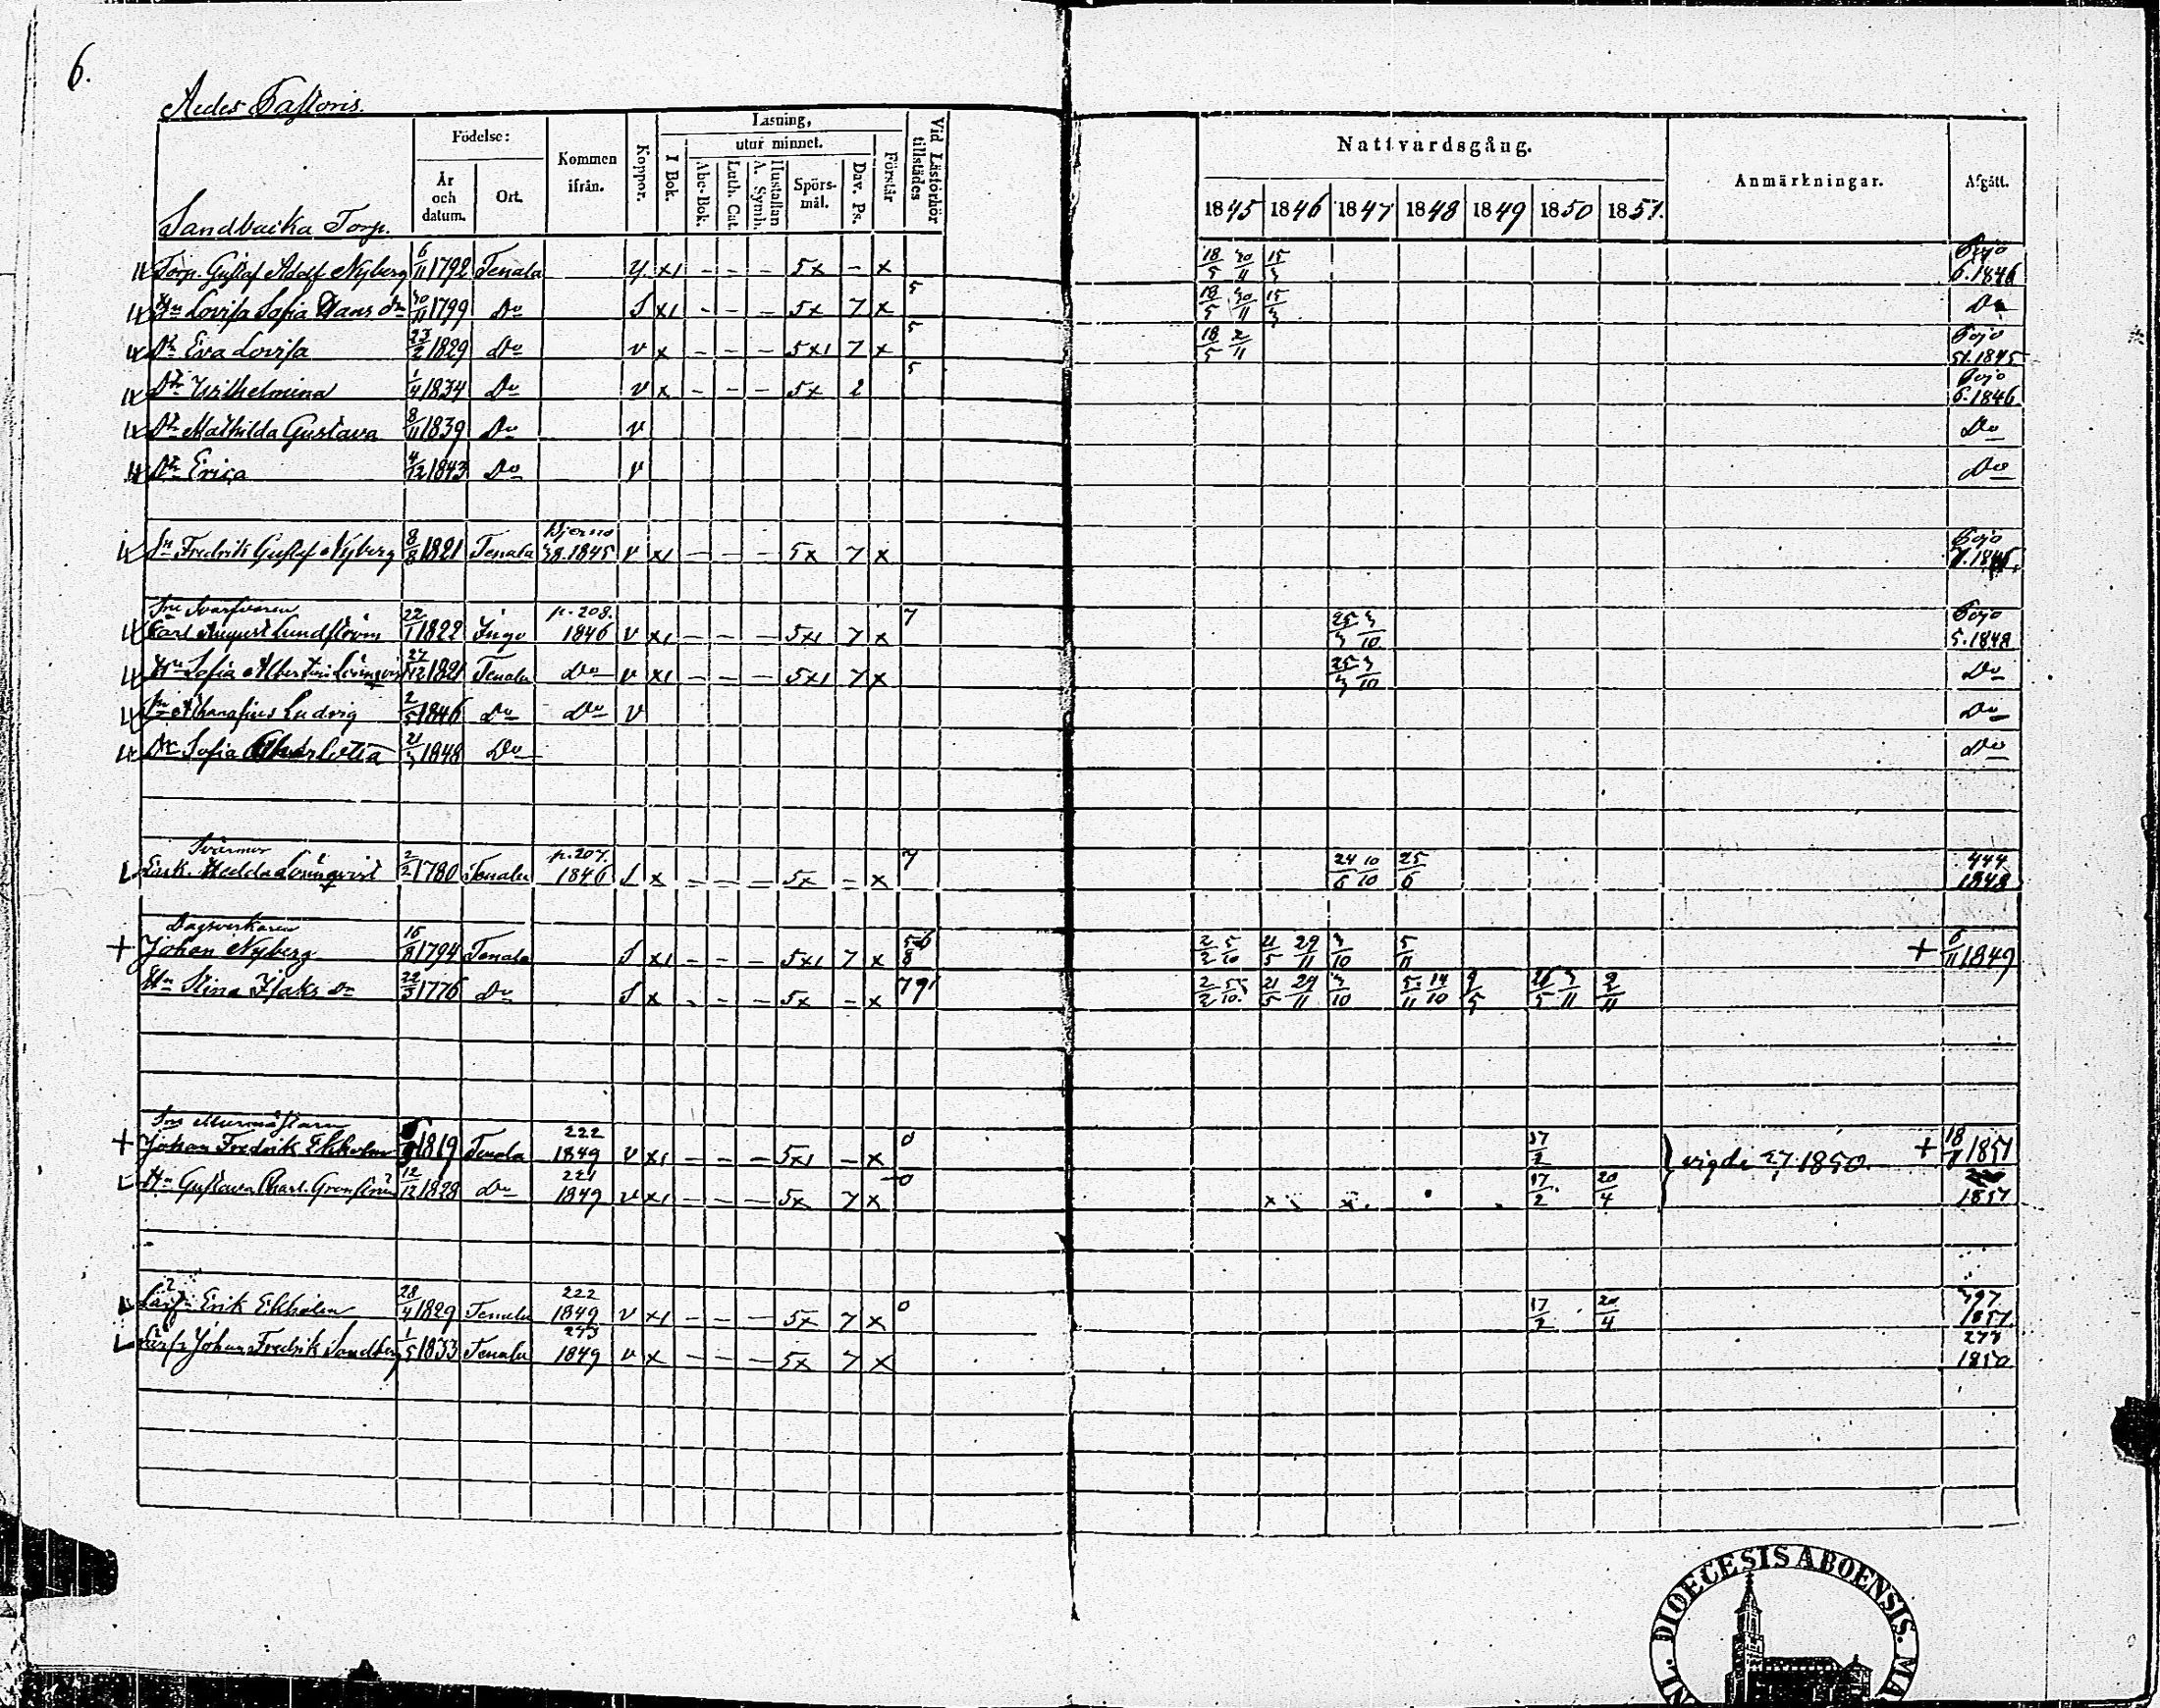 6.
Aedes Pastoris.
Födelse: Kommen ifrån. Koppor. Läsning, Förstår Vid Läsförhör tillstädes Nattvardsgång. Anmärkningar. Afgått.
År och datum. Ort. I Bok. utur minnet.
Abc-Bok. Luth. Cat. Hustaflan A. Symb. Spörsmål. Dav. Ps.
Sandbacka Torp. 1845 1846 1847 1848 1849 1850 1851.
Torp. Gustaf Adolf Nyberg 6/11 1792 Tenala y x1 - - - 5x - x 18/5 30/11 15/3 Pojo 6.1846
Hu Lovisa Sofia Hans dr 30/11 1799 Do S x1 - - - 5x 7 x 5 18/5 30/11 15/3 Do
Dr Eva Lovisa 23/2 1829 Do v x - - - 5x1 7 x 5 18/5 2/11 Pojo 51.1845
Dr Wilhelmina 1/4 1834 Do v x - - - 5x 2 5 Pojo 6.1846
Dr Mathilda Gustava 8/11 1839 Do v Do
Dr Erica 4/12 1843 Do v Do
Sn Fredrik Gustaf Nyberg 8/8 1821 Tenala Kjerno 38.1845 v x1 - - - 5x 7 x Pojo
Inh Svarfvaren
Carl August Lundström 22/1 1822 Ingo p. 208. 1846 v x1 - - - 5x1 7 x 7 25/3 3/10 Pojo 5.1848
Hu Sofia Albertina 27/12 1821 Tenala Do v x1 - - - 5x1 7 x 25/3 3/10 Do
Sn Athanasius Ludvig 2/5 1846 Do Do v Do
Dr Sofia Charlotta 21/3 1848 Do Do
Svärmor
Enk. Hedda Lönnqvist 2/2 1780 Tenala p. 207. 1846 S x - - - 5x - x 7 24/6 10/10 25/6 444 1848
Dagsverkaren
+ Johan Nyberg 15/8 1794 Tenala S x1 - - - 5x1 7 x 56 8 2/2 5/10 21/5 29/11 3/10 5/11 + 6/11 1849
Hu Stina Isaks dr 22/3 1776 Do S x - - - 5x - x 79 2/2 5/10 21/5 29/11 3/10 5/11 14/10 9/5 26/5 3/11 2/11
Inh Murmästaren
+ Johan Fredrik Ekholm 1819 Tenala 222 1849 v x1 - - - 5x1 - x 0 17/2 vigde 27.1850. + 18/8 1851
Hu Gustava Charl. 12/12 1828 Do 221 1849 v x1 - - - 5x 7 x 0 x x 17/2 20/4 1851
Erik Ekholm 28/4 1829 Tenala 222 1849 v x1 - - - 5x 7 x 0 17/2 20/4 397 1851
Johan Fredrik Sandberg 1/5 1833 Tenala 273 1849 v x - - - 5x 7 x 273 1850
DIOECESIS ABOENSIS. MA